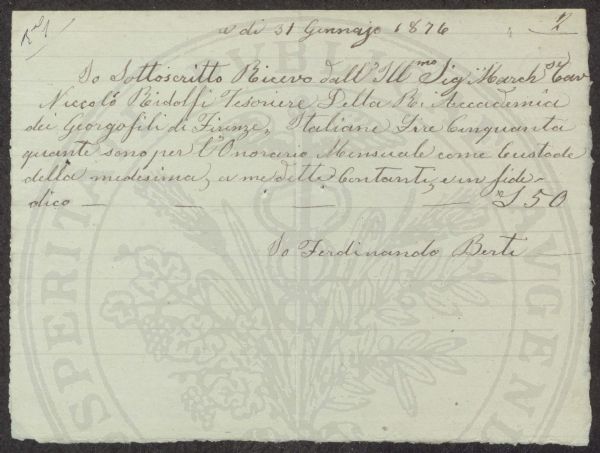 a di 31 Gennajo 1876
Io Sottoscritto Ricevo dall' Ill.mo Sig. March. se Cav
Niccoló Ridolfi Tesoriere Della R. Accademia
dei Georgofili di Firenze, Italiane Lire Cinquanta
quante sono per l'Onorario Mensuale come Custode
della medesima, a me ditti Contanti, e in fide
dico — £ 50
Io Ferdinando Berti
PUBLIC
PROSPERITATI
AUGENDAE